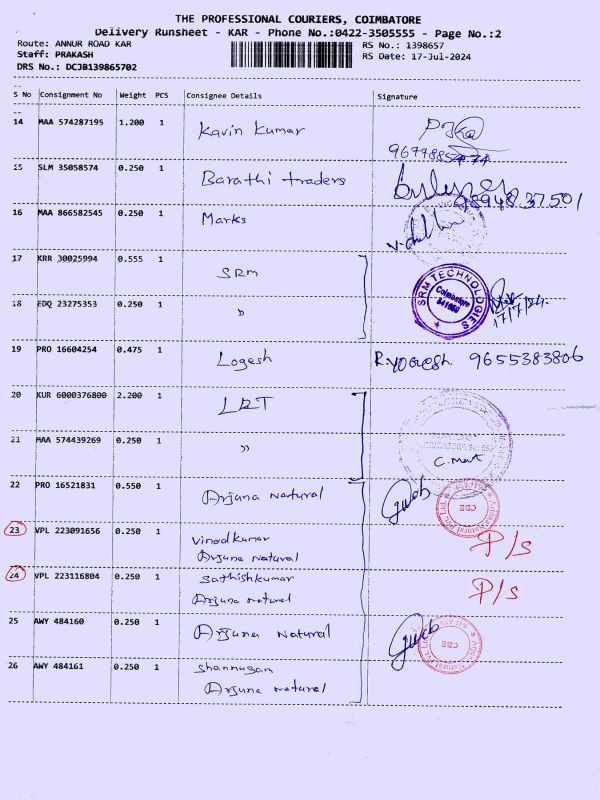 THE PROFESSIONAL COURIERS, COIMBATORE
Delivery Runsheet - KAR - Phone No.:0422-3505555 - Page No.:2
Route: ANNUR ROAD KAR
RS No.: 1398657
Staff: PRAKASH
RS Date: 17-Jul-2024
DRS No.: DCJB139865702
S No Consignment No Weight PCS Consignee Details Signature
14 MAA 574287195 1.200 1 Kavin Kumar
15 SLM 35058574 0.250 1 Barathi traders 98948 37501
16 MAA 866582545 0.250 1 Marks
17 KRR 30025994 0.555 1 SRM
SRM TECHNOLOGIES
Coimbatore
18 EDQ 23275353 0.250 1 "
17/7/24
19 PRO 16604254 0.475 1 Logesh R.yogesh 9655383806
20 KUR 6000376800 2.200 1 LRT
21 MAA 574439269 0.250 1 "
22 PRO 16521831 0.550 1 Arjuna Natural
CBE
23 VPL 223091656 0.250 1 Vinodkumar P/s
Arjuna Natural
24 VPL 223116804 0.250 1 Sathishkumar P/s
Arjuna Natural
25 AWY 484160 0.250 1 Arjuna Natural
CBE
26 AWY 484161 0.250 1 Shanmugan
Arjuna Natural